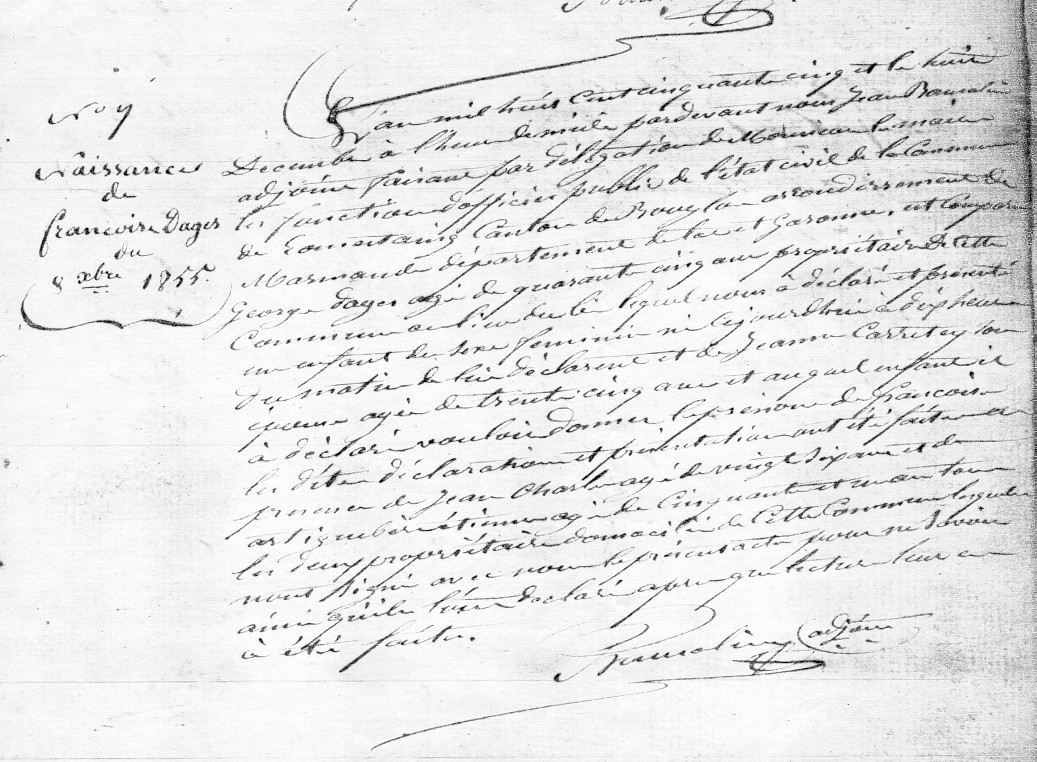 N° 9
Naissance
de
francoise Dages
du
8 xbre 1855.
L'an mil huit cent cinquante cinq et le huit
Decembre à l'heure de midi pardevant nous Jean
adjoint faisant par délégation de Monsieur le maire
les fonction d'officier public de l'état civil de la Commune
de Canton de Bouglon arrondissement de
Marmande département de lot et Garonne, est comparu
George dages agé de quarante cinq ans propriétaire de Cette
Commune au lieu du lequel nous à déclaré et presenté
un enfant du sexe feminin né cejourdhui à dix heure
du matin de lui déclarent et de Jeanne Carretey son
épouse agée de trente cinq ans et auquel enfant il
à déclaré vouloir donner le prénom de francoise
les dites déclaration et présentation ont été faites en
presence de Jean Charle agé de vingt six ans et de
étienne agé de Cinquante et un an tous
les deux propriétaire domicilié de Cette Commune lesquels
nont signé avec nous le présent acte pour ne savoir
ainsi qu'ils l'ont declaré apres que lecture leur en
à été faite.
adjoint